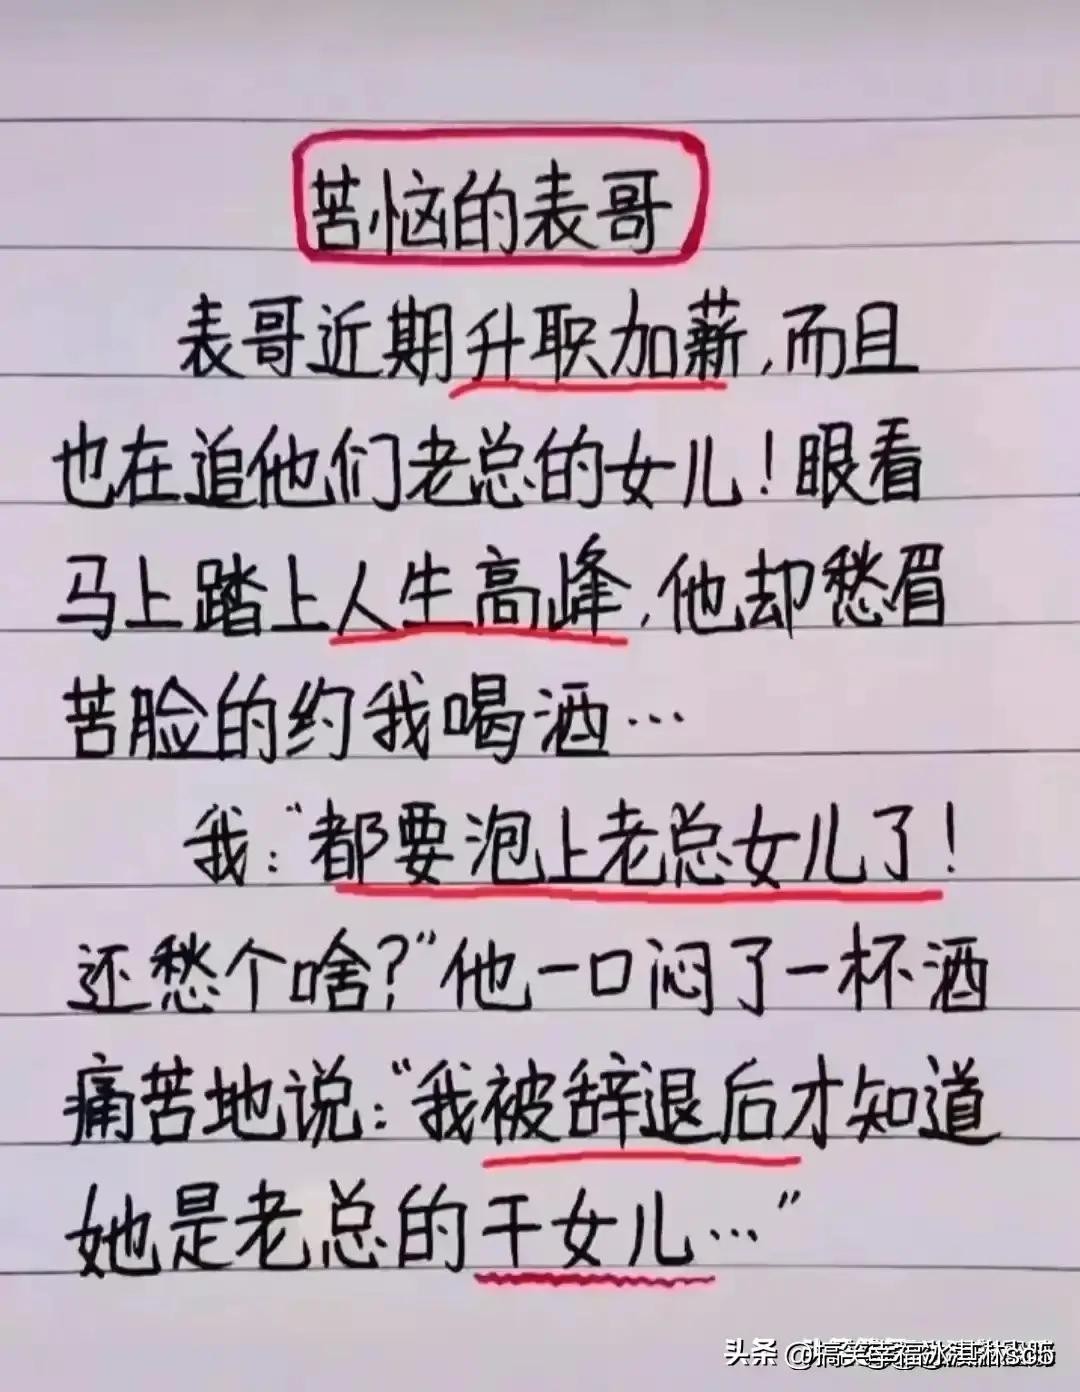 苦恼的表哥
表哥近期升职加薪,而且
也在追他们老总的女儿!眼看
马上踏上人生高峰,他却愁眉
苦脸的约我喝酒…
我:“都要泡上老总女儿了!
还愁个啥?”他一口闷了一杯酒
痛苦地说:“我被辞退后才知道
她是老总的干女儿…”
头条 @搞笑幸福冰淇淋